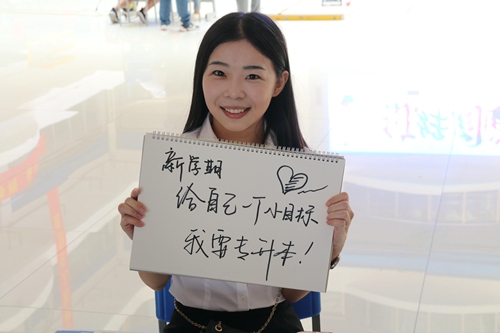 新学期
给自己一个小目标
我要专升本！